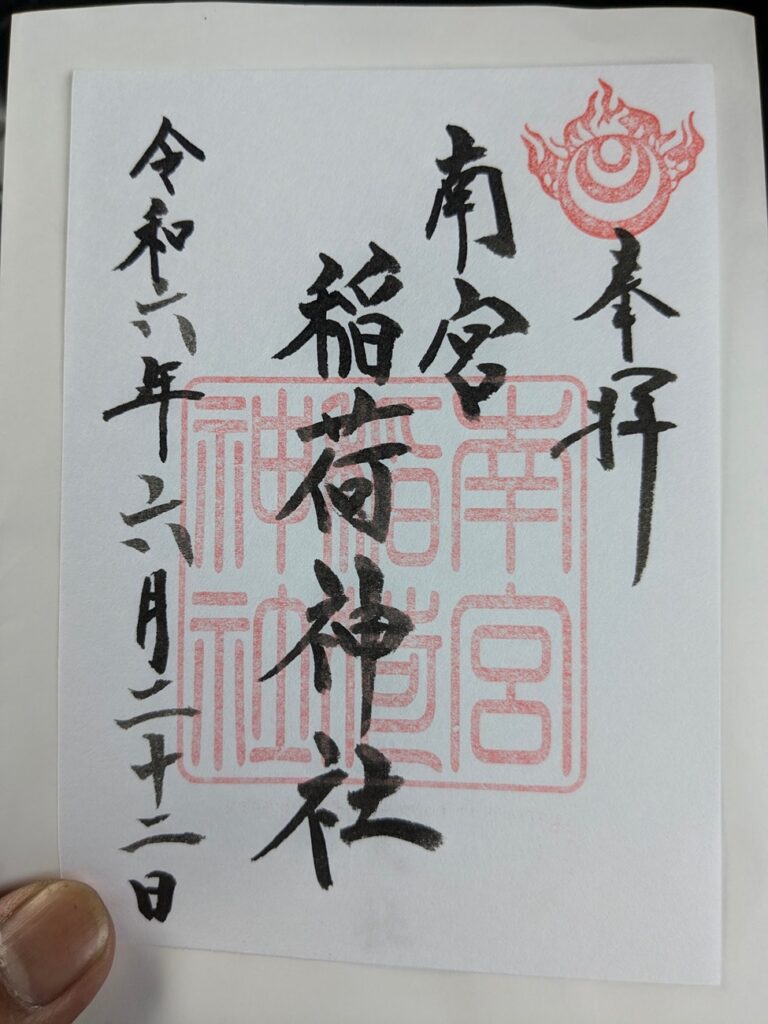 奉拝
南宮
稲荷神社
令和六年六月二十二日
南宮
稲荷
神社